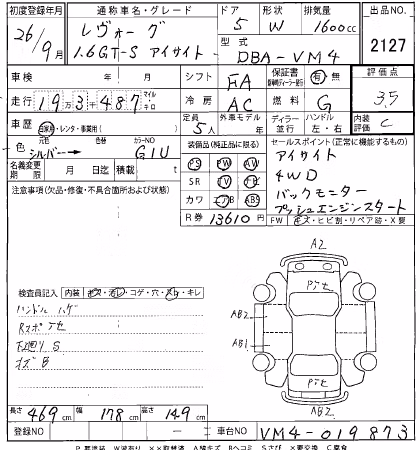 初度登録年月 通称車名・グレード ドア 形状 排気量 出品NO.
26/9月 レヴォーグ 1.6GT-S アイサイト 5 W 1600cc 2127
型式 DBA-VM4
車検 年 月 シフト FA 保証書 有・無 評価点 3.5
走行 19万3千487 マイル キロ 冷房 AC 燃料 G
車歴 自家用・レンタ・事業用( ) 定員 5人 外車モデル 年 ディーラー 並行 ハンドル 左・右 内装評価 C
色 元色 シルバー→ 色替 カラーNO G1U
装備品(純正品に限る)
PS PW AW
SR TV ナビ
カワ エアB ABS
R券 13610円
セールスポイント(正常に機能するもの)
アイサイト
4WD
バックモニター
プッシュエンジンスタート
名義変更期限 月 日 積載 t
FW キズ・ヒビ割・リペア跡・X要
注意事項(欠品・修復・不具合箇所および状態)
検査員記入 内装 キズ・汚レ・コゲ・穴・スレ・キレ
ハンドルハゲ
Rスポイラ
下廻りS
キズB
A2
AB2
AB1
AB2
長さ 469cm 幅 178cm 高さ 149cm
登録NO 車台NO VM4-019873